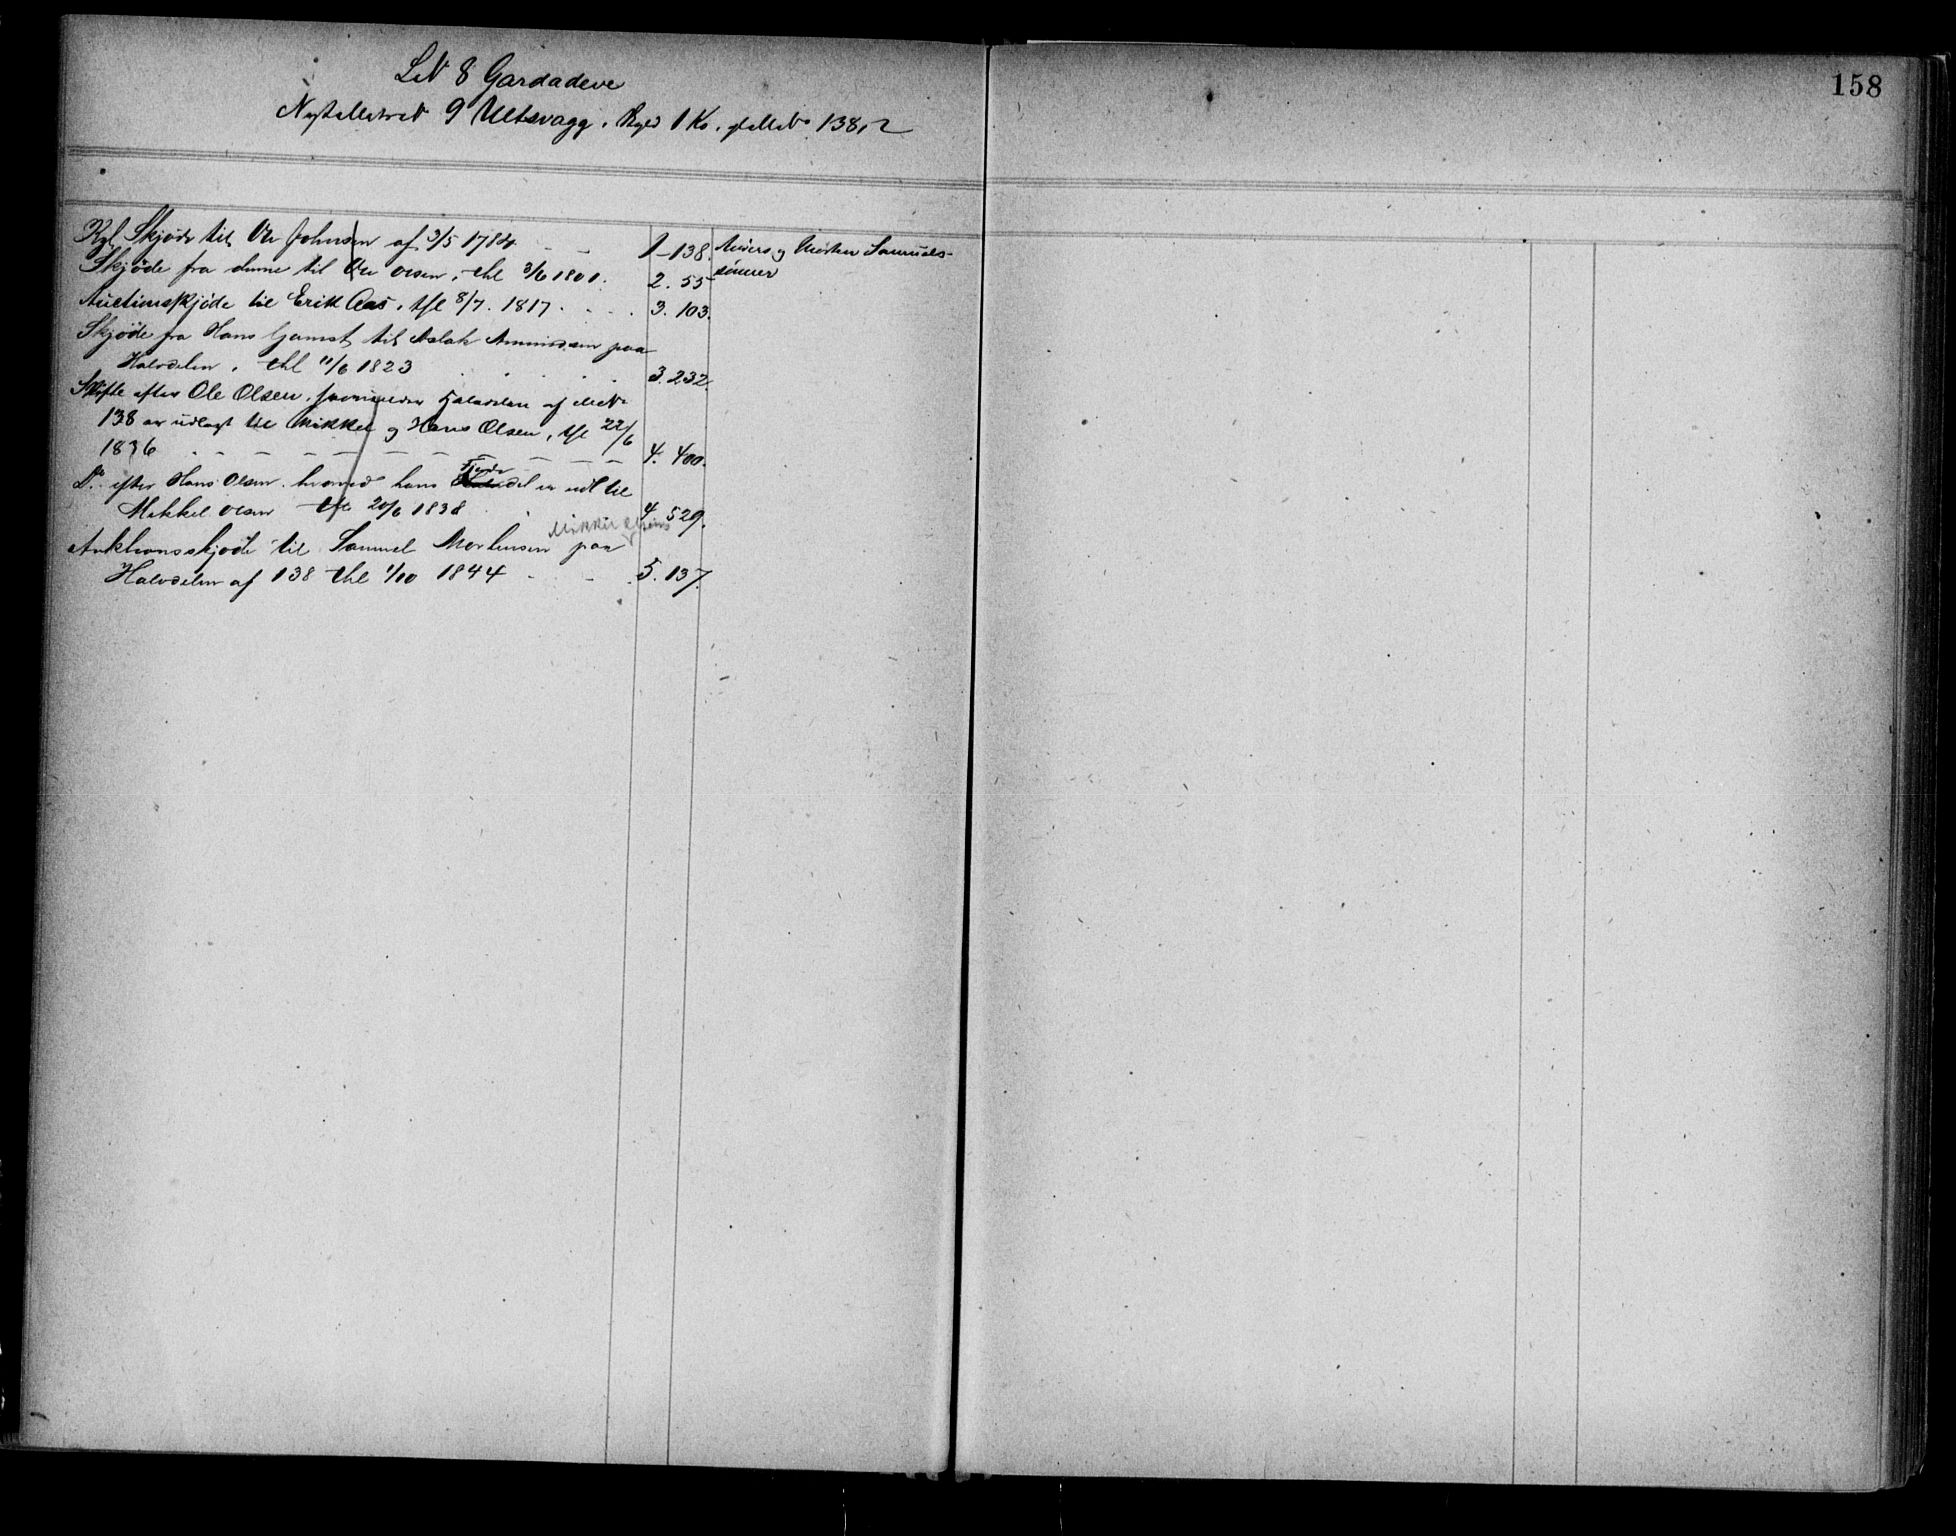 158
LN 8 Gardadeve
9 Ultsvagg. Bygsl 1 Ko. gl. MNo 138,2
Kgl. Skjøde til Ole Johnsen af 3/5 1784 - - 1-138. Anders og Morten Samuels-
sønner
Skjøde fra denne til Ole Olsen, thl 3/6 1801. 2. 55
Auctionskjøde til Erik Aas, thl 8/7. 1817. . . . 3. 103.
Skjøde fra Hans Gamst til Aslak Amundsen paa
Halvdelen, thl 11/6 1823 . . . . 3. 232.
Skifte efter Ole Olsen, Halvdelen af MNo
138 er udlagt til Mikkel og Hans Olsen, thl 22/6
1836 - - - - - - - - 4. 400.
Do efter Hans Olsen hvorved hans Fjerdedel er udl til
Mikkel Olsen thl 20/6 1838 4. 529.
Mikkel Olsens
Auktionsskjøde til Samuel Mortensen paa
Halvdelen af 138 thl 1/10 1844 - - . 5. 137.